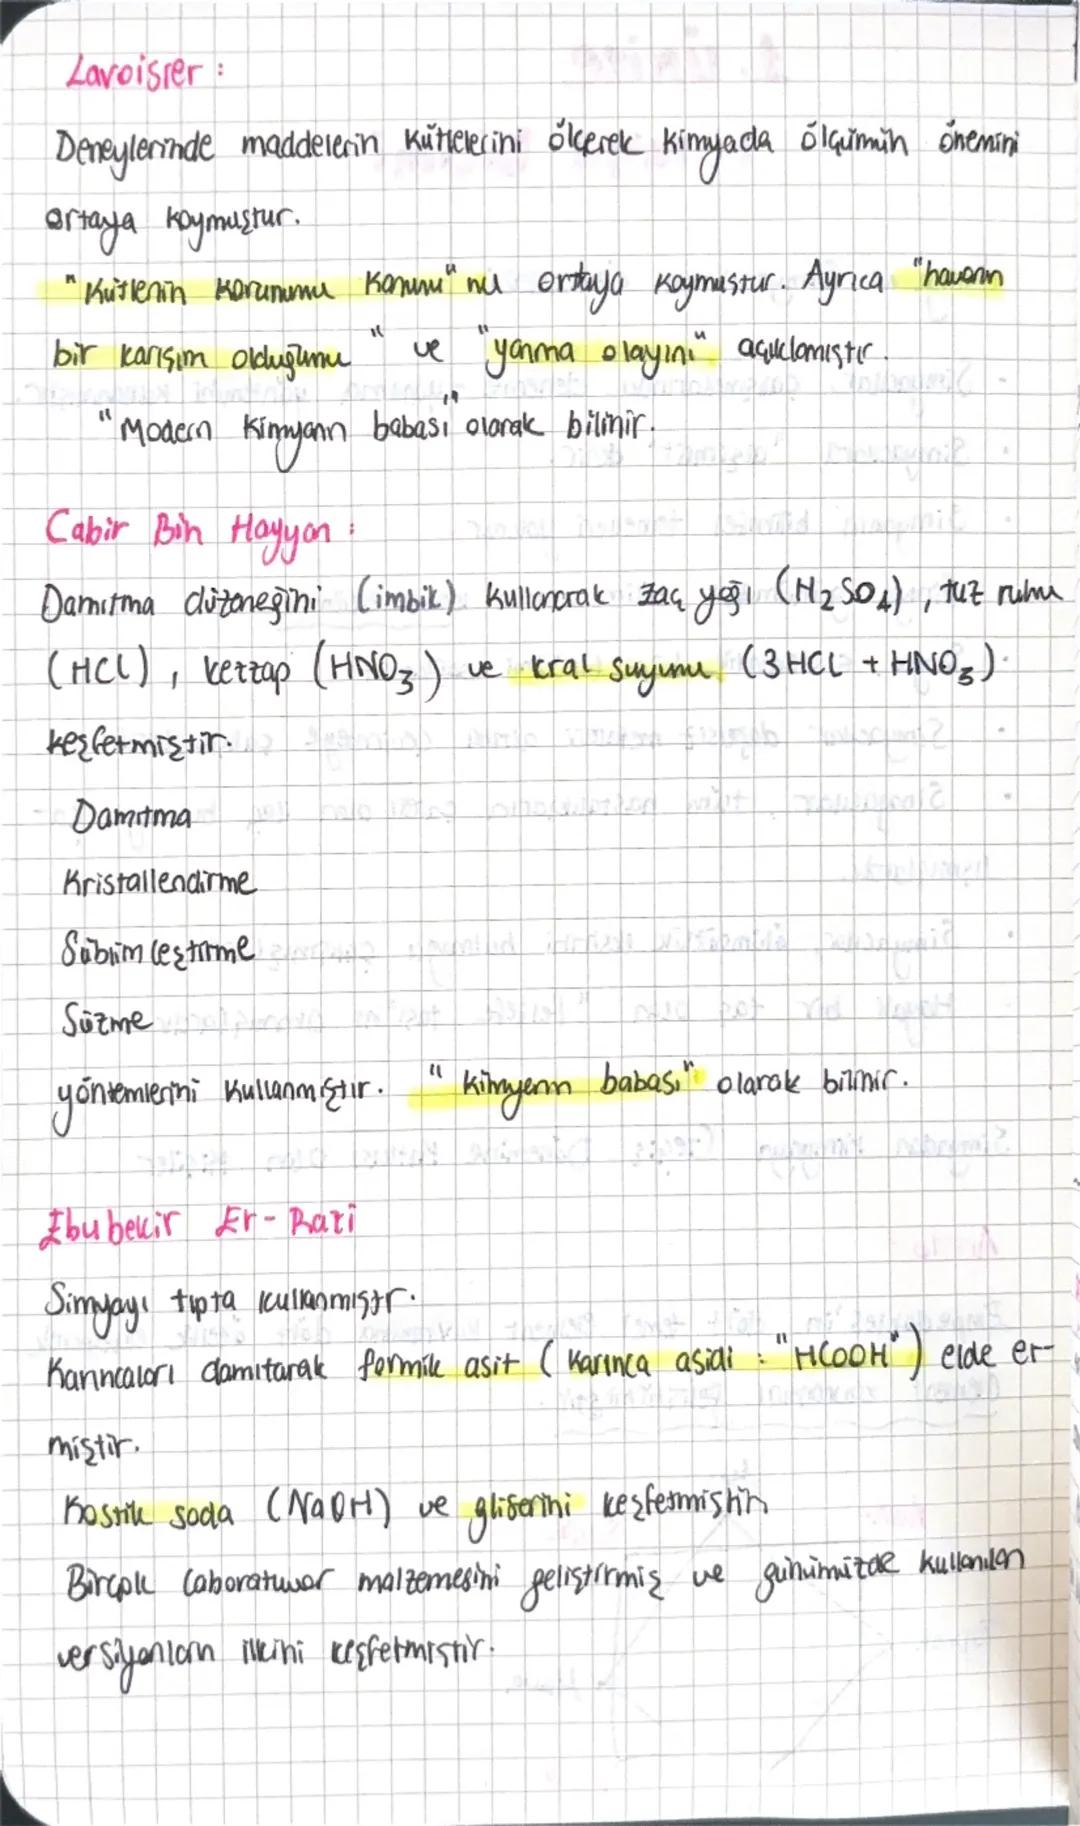 Lavoisier :
Deneylerinde maddelerin kütlelerini ölçerek kimyada ölçümün önemini
ortaya koymuştur.
"Kütlenin korunumu kanunu" nu ortaya koymuştur. Ayrıca "havanın
bir karışım olduğunu" ve "yanma olayını" açıklamıştır.
"Modern kimyanın babası" olarak bilinir.
Cabir Bin Hayyan :
Damıtma düzeneğini (imbik) kullanarak zaç yağı (H₂SO₄), tuz ruhu
(HCl), kezzap (HNO₃) ve kral suyunu (3HCL + HNO₃)
keşfetmiştir.
Damıtma
Kristallendirme
Süblimleştirme
Süzme
yöntemlerini kullanmıştır. "kimyanın babası" olarak bilinir.
Ebubekir Er-Razi
Simyayı tıpta kullanmıştır.
Karıncaları damıtarak formik asit (karınca asidi : "HCOOH") elde er-
miştir.
Kostik soda (NaOH) ve gliserini keşfetmiştir
Birçok laboratuvar malzemesini geliştirmiş ve günümüzde kullanılan
versiyonların ilkini keşfetmiştir.